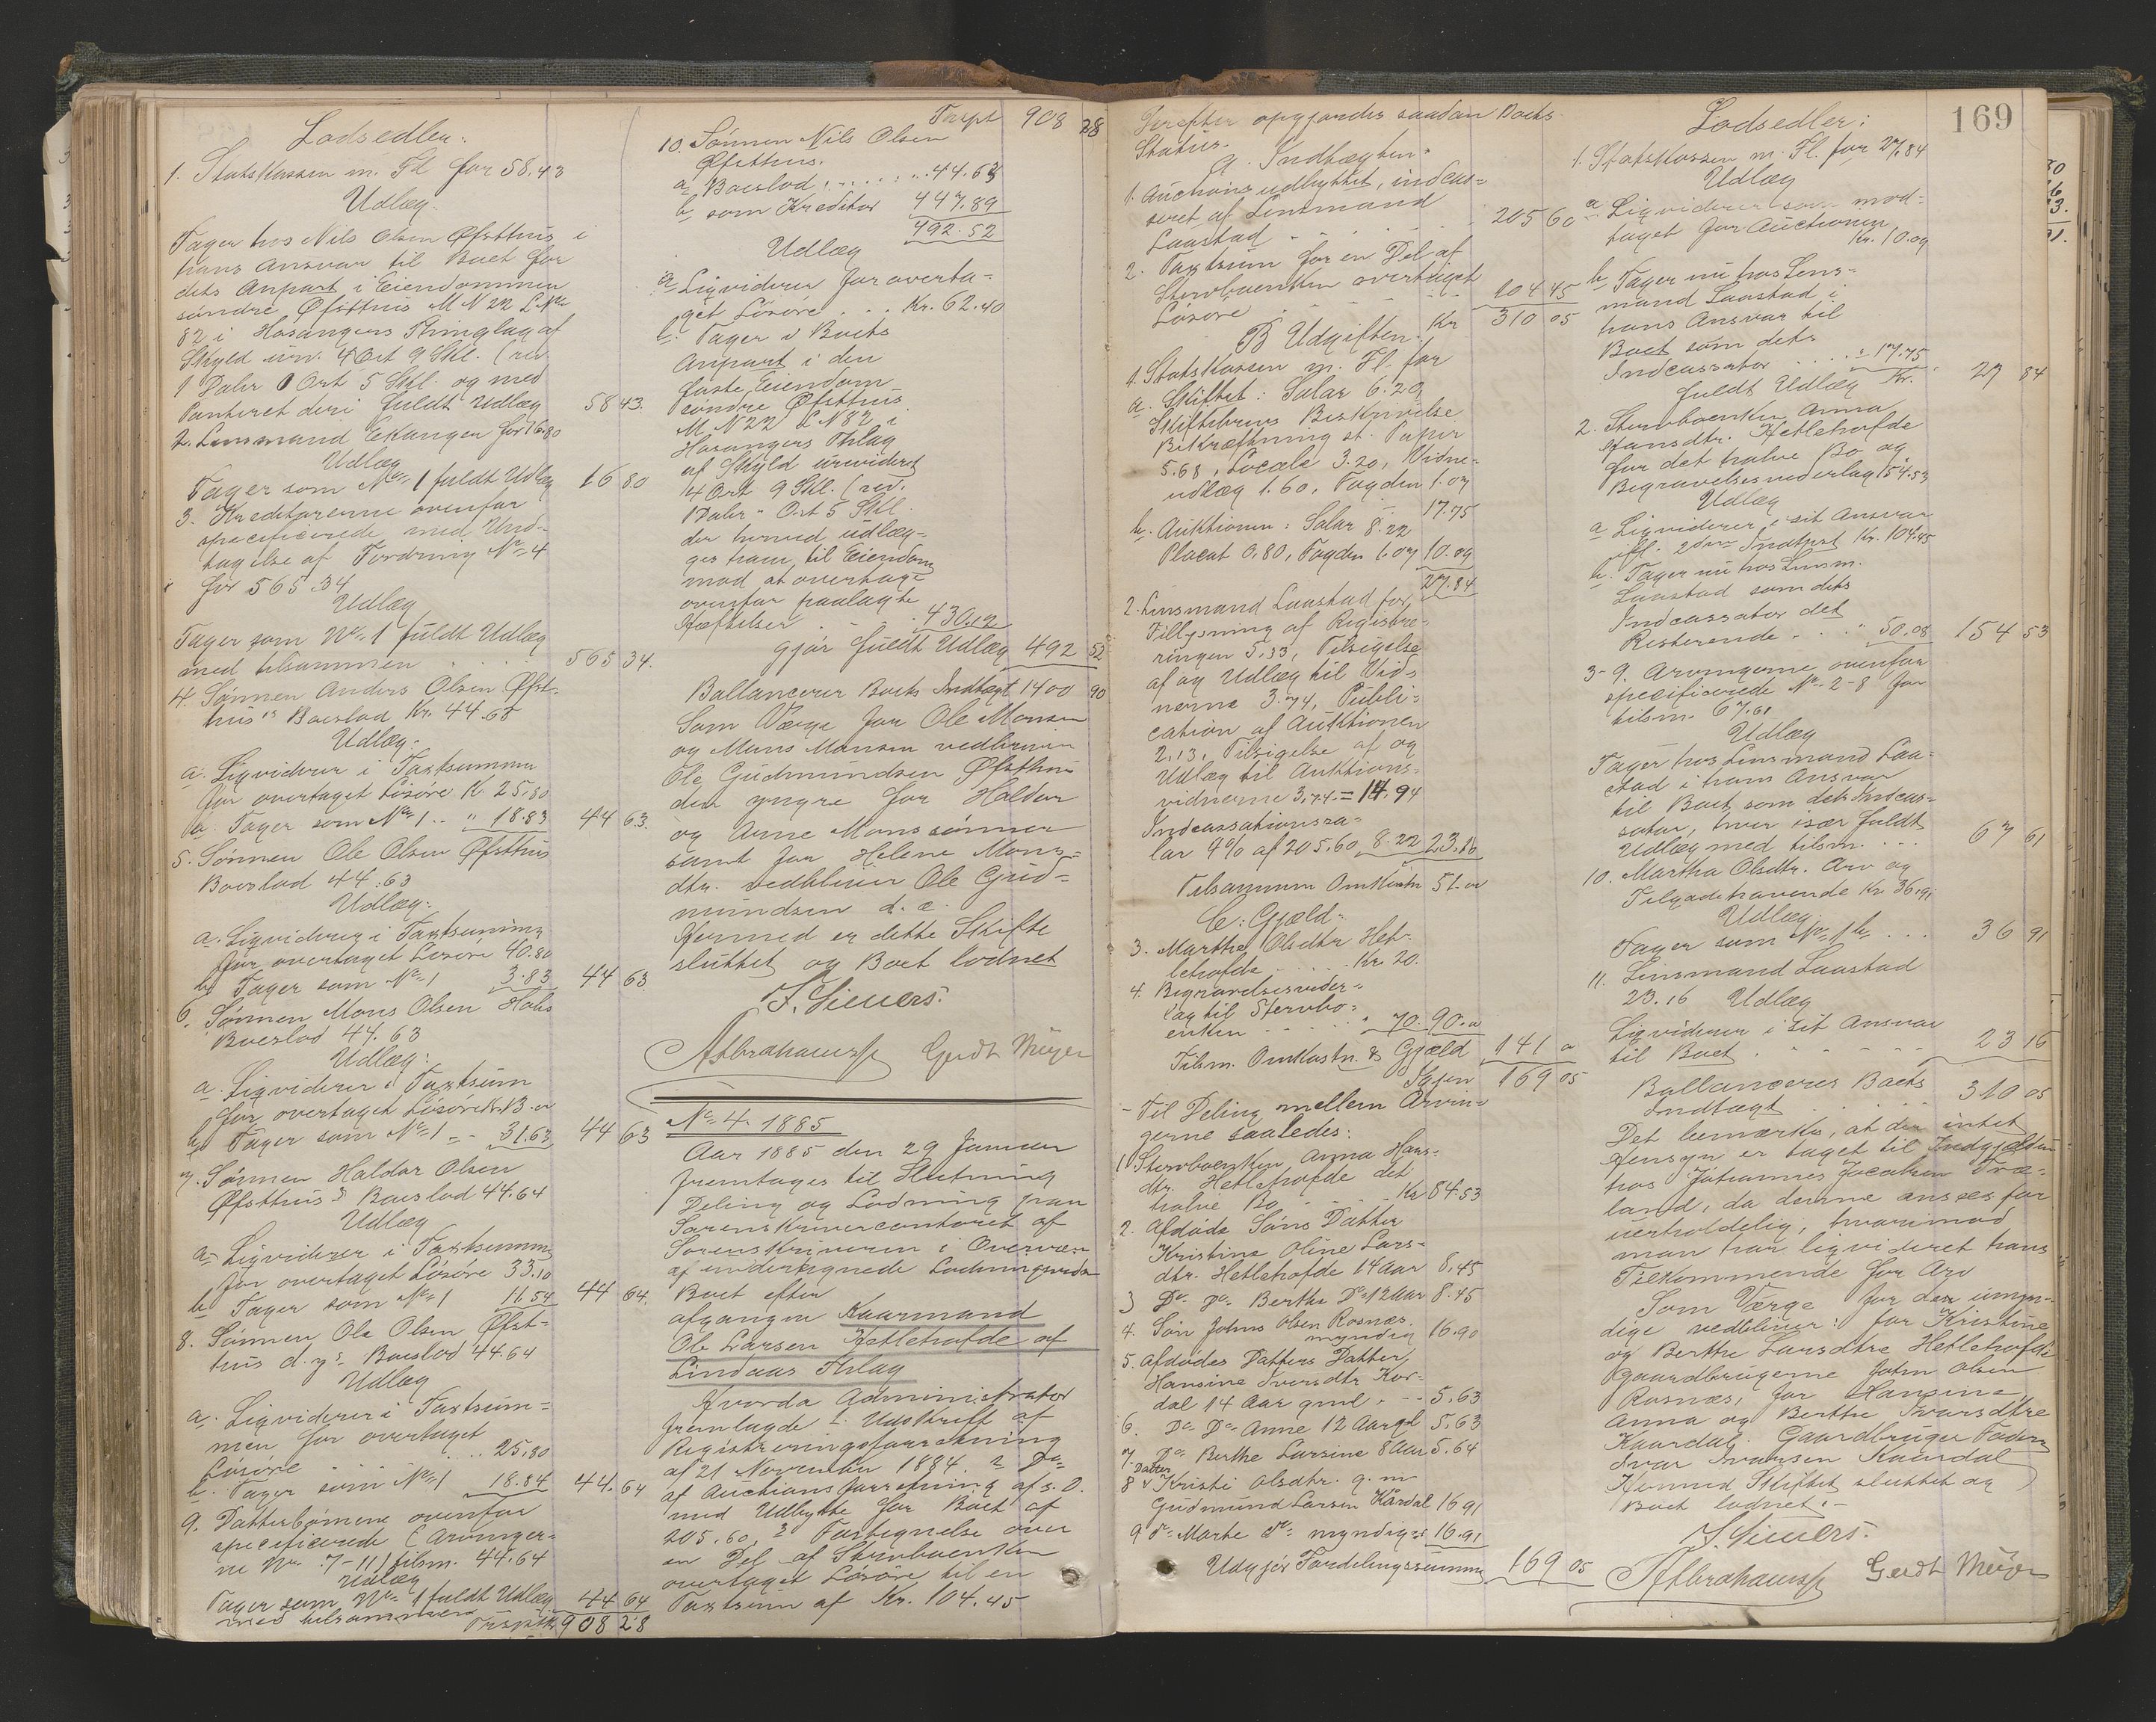 Lodsedler:
1. Statskassen m. Fl for 58.43
Udlæg.
Tager hos Nils Olsen Øfsthus i
hans Ansvar til Boet for
dets Anpart i Eiendommen
søndre Øfsthus M N 22 L No
82 i Hosangers Thinglag af
Skyld urev. 4 Ort 9 Skl. (rev
1 Daler 0 Ort 5 Skl. og med
Panteret deri fuldt Udlæg 58 43.
2. Lensmand Eknangen for 16.80
Udlæg
Tager som No 1 fuldt Udlæg 16 80
3. Kreditorerne ovenfor
specificerede med Und-
tagelse af Fordring No 4
for 565.34
Udlæg
Tager som No 1 fuldt Udlæg
med tilsammen 565 34.
4. Sønnen Anders Olsen Øfst-
hus's Boeslod Kr. 44.63
Udlæg.
a. Liqviderer i Taxtsummen
for overtaget Løsøre K. 25.80
b. Tager som No 1 .. " 18.83 44 63.
5. Sønnen Ole Olsen Øfsthus
Boeslod 44.63
Udlæg:
a. Liqviderer i Taxtsummen
for overtaget Løsøre 40.80
b. Tager som No 1 3.83 44 63
6. Sønnen Mons Olsen
Boeslod 44.63
Udlæg:
a. Liqviderer i Taxtsum
for overtaget Løsøre Kr. 13.00
b. Tager som No 1 - - 31.63 44 63
7. Sønnen Haldor Olsen
Øfsthus's Boeslod 44.64
Udlæg
a. Liqviderer i Taxtsummen
for overtaget Løsøre 33.10
b. Tager som No 1 11.54 44 64.
8. Sønnen Ole Olsen Øfst-
hus d.y.s Boeslod 44.64
Udlæg
a. Liqviderer i Taxtsum-
men for overtaget
Løsøre .. 25.80
b. Tager som No 1 18.84 44. 64
9. Datterbørnene ovenfor
specificerede (Arvinger-
ne No. 7-11) tilsm. 44.64
Udlæg
Tager som No 1 fuldt Udlæg 44 64
med tilsammen
Trspt 908 28
Trspt 908 28
10. Sønnen Nils Olsen
Øfsthus.
a. Boeslod . . . . . . 44.63
b. som Kreditor 447.89
492.52
Udlæg
a. Liqviderer for overta-
get Løsøre . . . Kr. 62.40
b. Tager i Boets
Anpart i den
faste Eiendom
søndre Øfsthus
M N 22 L N 82 i
Hosangers Thlag
af Skyld urevideret
4 Ort 9 Skl. (rev.
1 Daler " Ort 5 Skl.
der herved udlæg-
ges ham til Eiendom
mod at overtage
ovenfor paalagte
Hæftelser . . 430.12
gjør fuldt Udlæg 492 52
Ballancerer Boets Indtægt 1400 90
Som Værge for Ole Monsen
og Mons Monsen vedbliver
Ole Gudmundsen Øfsthus
den yngre for Haldor
og Arne Monssønner
samt for Helene Mons-
dtr. vedbliver Ole Gud-
mundsen d. æ.
Hermed er dette Skifte
sluttet og Boet lodnet
J. Sieuers.
A Abrahamsen Gerdt Meyer
No 4. 1885
Aar 1885 den 29 Januar
fremtoges til Slutning
Deling og Lodning paa
Sorenskrivercontoret af
Sorenskriveren i Overvær
af undertegnede Lodningsvidner
Boet efter
afgangen Kaarmand
Ole Larsen Hetlehofde af
Lindaas Thlag
Hvorda Administrator
fremlagde 1. Udskrift af
Registreringsforretning
af 21 November 1884 2 Do
af Auctionsforretning af s. D.
med Udbytte for Boet af
205.60, 3 Fortegnelse over
en Del af Stervboenken
overtaget Løsøre til en
Taxtsum af Kr. 104.45
Derefter opgjordes saadan Boets
Status.
A. Indtægten.
1. Auctionsudbyttet, indcas-
seret af Lensmand
Laastad - - . . . . 205 60
2. Taxtsum for en Del af
Stervboenken overtaget
Løsøre - - - - - 104 45
Kr 310 05
B Udgiften:
1. Statskassen m. Fl. for
a. Skiftet: Salar 6.20
Skiftebrevs Beskrivelse
Bekræftning st. Papir
5.68, Locale 3.20, Vidne-
udlæg 1.60, Fogden 1.07
17.75
b. Auktionen: Salar 8.22
Placat 0.80, Fogden 1.07 10.09
27.84
2. Lensmand Laastad for
Tillysning af Registre-
ringen 5.33, Tilsigelse
af og Udlæg til Vid-
nerne 3.74, Publi-
cation af Auktionen
2.13, Tilsigelse af og
Udlæg til Auktions-
vidnerne 3.74 = 14.94
Indcassationssa-
lar 4% af 205.60 8.22 23.16
Tilsammen Omkostn 51.00
C: Gjæld.
3. Marthe Olsdtr Het-
lehofde . . . . . Kr 20.
4. Begravelsesveder-
lag til Stervbo-
enken - - - - - " 70. 90.00
Tilsm. Omkostn. & Gjæld 141 00
Igjen 169 05
- Til Deling mellem Arvin-
gerne saaledes:
1 Stervboenken Anna Hans-
dtr. Hetlehofde det
halve Bo - - - - Kr 84.53
2. Afdøde Søns Datter
Kristine Oline Lars-
dtr. Hetlehofde 14 Aar 8.45
3 Do Do Berthe Do 12 Aar 8.45
4. Søn Johns Olsen Rosnæs.
myndig 16.90
5. Afdødes Datters Datter
Hansine Iversdtr Kor-
dal 14 Aar gml . - - 5.63
6. Do Do Anne 12 Aar gl 5.63
7. Do Berthe Larsine 8 Aar 5.64
8 Datter Kristi Olsdtr. g. m
Gudmund Larsen Kårdal 16 91
9 do Marte do myndig 16.91
Udgjør Fordelingssummen 169 05
169
Lodsedler:
1. Statskassen m. Fl. for 27.84
Udlæg
a. Liqviderer som mod-
taget for Auctionen
Kr. 10.09
b. Tager nu hos Lens-
mand Laastad i
hans Ansvar til
Boet som dets
Indcassator . . . . " 17.75
fuldt Udlæg Kr. 27 84
2. Stervboenken Anna
Hansdtr. Hetlehofde
for det halve Bo og
Begravelsesvederlag 154.53
Udlæg
a Liqviderer i sit Ansvar
Kr. 104.45
b. Tager nu hos Lensm.
Laastad som dets
Indcassator det
Resterende . . . " 50.08 154 53
3-9. Arvingerne ovenfor
specificerede No 2-8 for
tilsm. 67.61
Udlæg
Tager hos Lensmand Laa-
stad i hans Ansvar
til Boet som dets Indcas-
sator, hver især fuldt
Udlæg med tilsm. . . . 67 61
10. Martha Olsdtr. Arv og
Tilgodehavende Kr 36.91
Udlæg
Tager som No 1 b. . . . 36 91
11. Lensmand Laastad
23.16 Udlæg
Liqviderer i sit Ansvar
til Boet . - - - - 23 16
Ballanceres Boets
Indtægt . . . . . . 310 05
Det bemærkes, at der intet
Hensyn er taget til Indgjælden
hos Johannes Jacobsen Træ-
land, da denne ansees for
uerholdelig, hvorimod
man har liqvideret hans
Tilkommende for Arv
Som Værge for den umyn-
dige vedbliver: for Kristine
og Berthe Larsdtre Hetlehofde
Gaardbrugerne John Olsen
Rosnæs, for Hansine,
Anna og Berthe Iversdtre
Kaardal. Gaardbruger Faderen
Ivar Ivarsen Kaardal
Hermed Skiftet sluttet og
Boet lodnet. -
J. Sieuers.
A Abrahamsen Gerdt Meyer